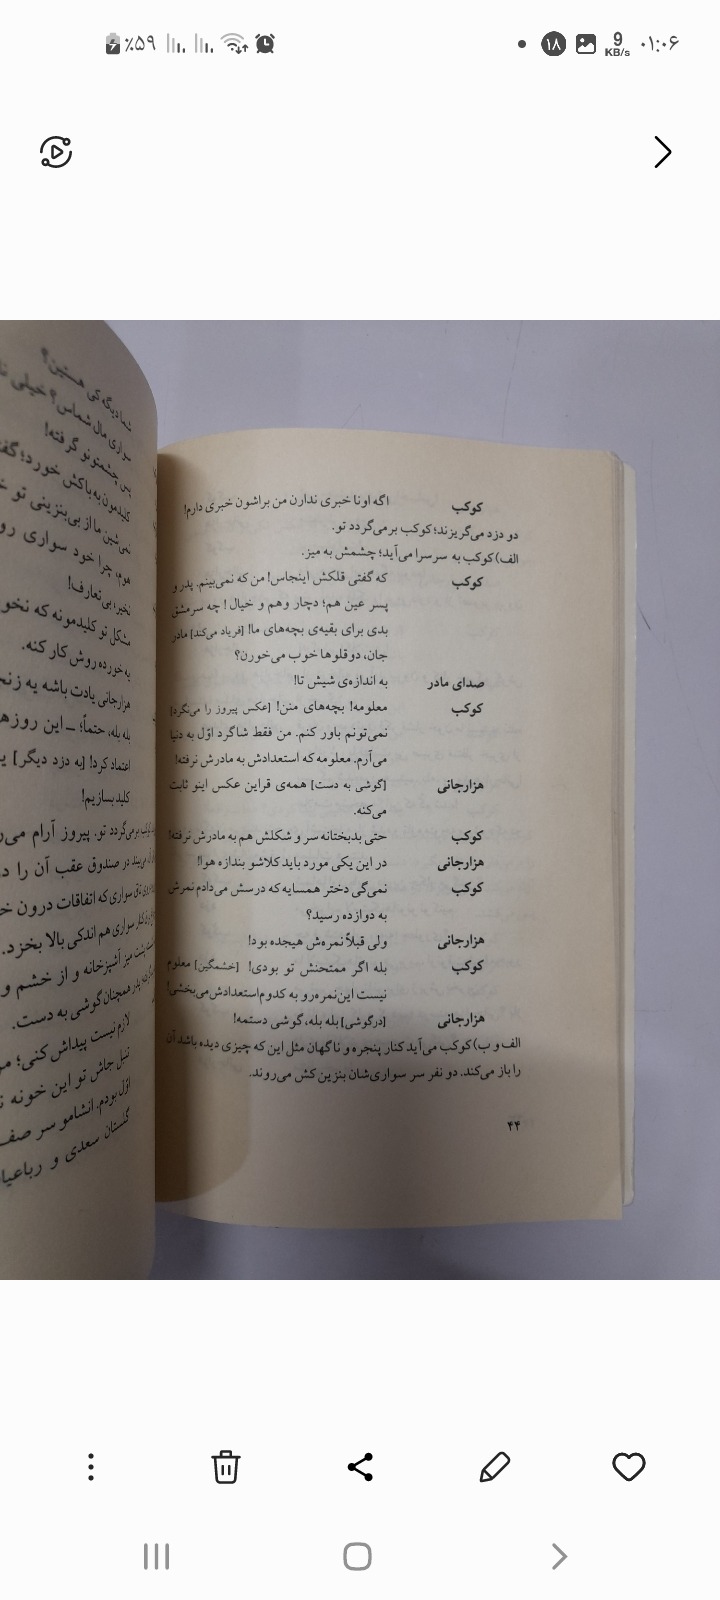 ٪۵۹
۱۸
9
KB/s
۰۱:۰۶
کوکب اگه اونا خبری ندارن من براشون خبری دارم!
دو دزد می‌گریزند؛ کوکب برمی‌گردد تو.
الف) کوکب به سرسرا می‌آید؛ چشمش به میز.
کوکب که گفتی قلکش اینجاس! من که نمی‌بینم. پدر و
پسر عین هم؛ دچار وهم و خیال! چه سرمشق
بدی برای بقیه‌ی بچه‌های ما! [فریاد می‌کند] مادر
جان، دوقلوها خوب می‌خورن؟
صدای مادر به اندازه‌ی شیش تا!
کوکب معلومه! بچه‌های منن! [عکس پیروز را می‌نگرد]
نمی‌تونم باور کنم. من فقط شاگرد اوّل به دنیا
می‌آرم. معلومه که استعدادش به مادرش نرفته!
هزارجانی [گوشی به دست] همه‌ی قراین عکس اینو ثابت
می‌کنه.
کوکب حتی بدبختانه سر و شکلش هم به مادرش نرفته!
هزارجانی در این یکی مورد باید کلاشو بندازه هوا!
کوکب نمی‌گی دختر همسایه که درسش می‌دادم نمرش
به دوازده رسید؟
هزارجانی ولی قبلاً نمره‌ش هیجده بود!
کوکب بله اگر ممتحنش تو بودی! [خشمگین] معلوم
نیست این نمره‌رو به کدوم استعدادش می‌بخشی!
هزارجانی [درگوشی] بله بله، گوشی دستمه!
الف و ب) کوکب می‌آید کنار پنجره و ناگهان مثل این که چیزی دیده باشد آن
را باز می‌کند. دو نفر سر سواری‌شان بنزین کش می‌روند.
۴۴
شما دیگه کی هستین؟
سواری مال شماس؟ خیلی
پس چشمتونو گرفته!
کلیدمون به باکش خورد؛
نمی‌شین ما از بی‌بنزینی تو
هوم، چرا خود سواری
نخیر؛ بی‌تعارف!
مشکل تو کلیدمونه که
یه خورده روش کار کنه.
هزارجانی یادت باشه یه
بله بله، حتماً؛ ـ این
اعتماد کرد! [به دزد دیگر]
کلید بسازیم!
برمی‌گردد تو. پیروز آرام
در صندوق عقب آن را
سواری که اتفاقات درون
سواری هم اندکی بالا بخزد.
پشت میز آشپزخانه و از خشم و
پدر همچنان گوشی به دست.
لازم نیست پیداش کنی؛
تنبل جاش تو این خونه
اوّل بودم. انشامو سر
گلستان سعدی و